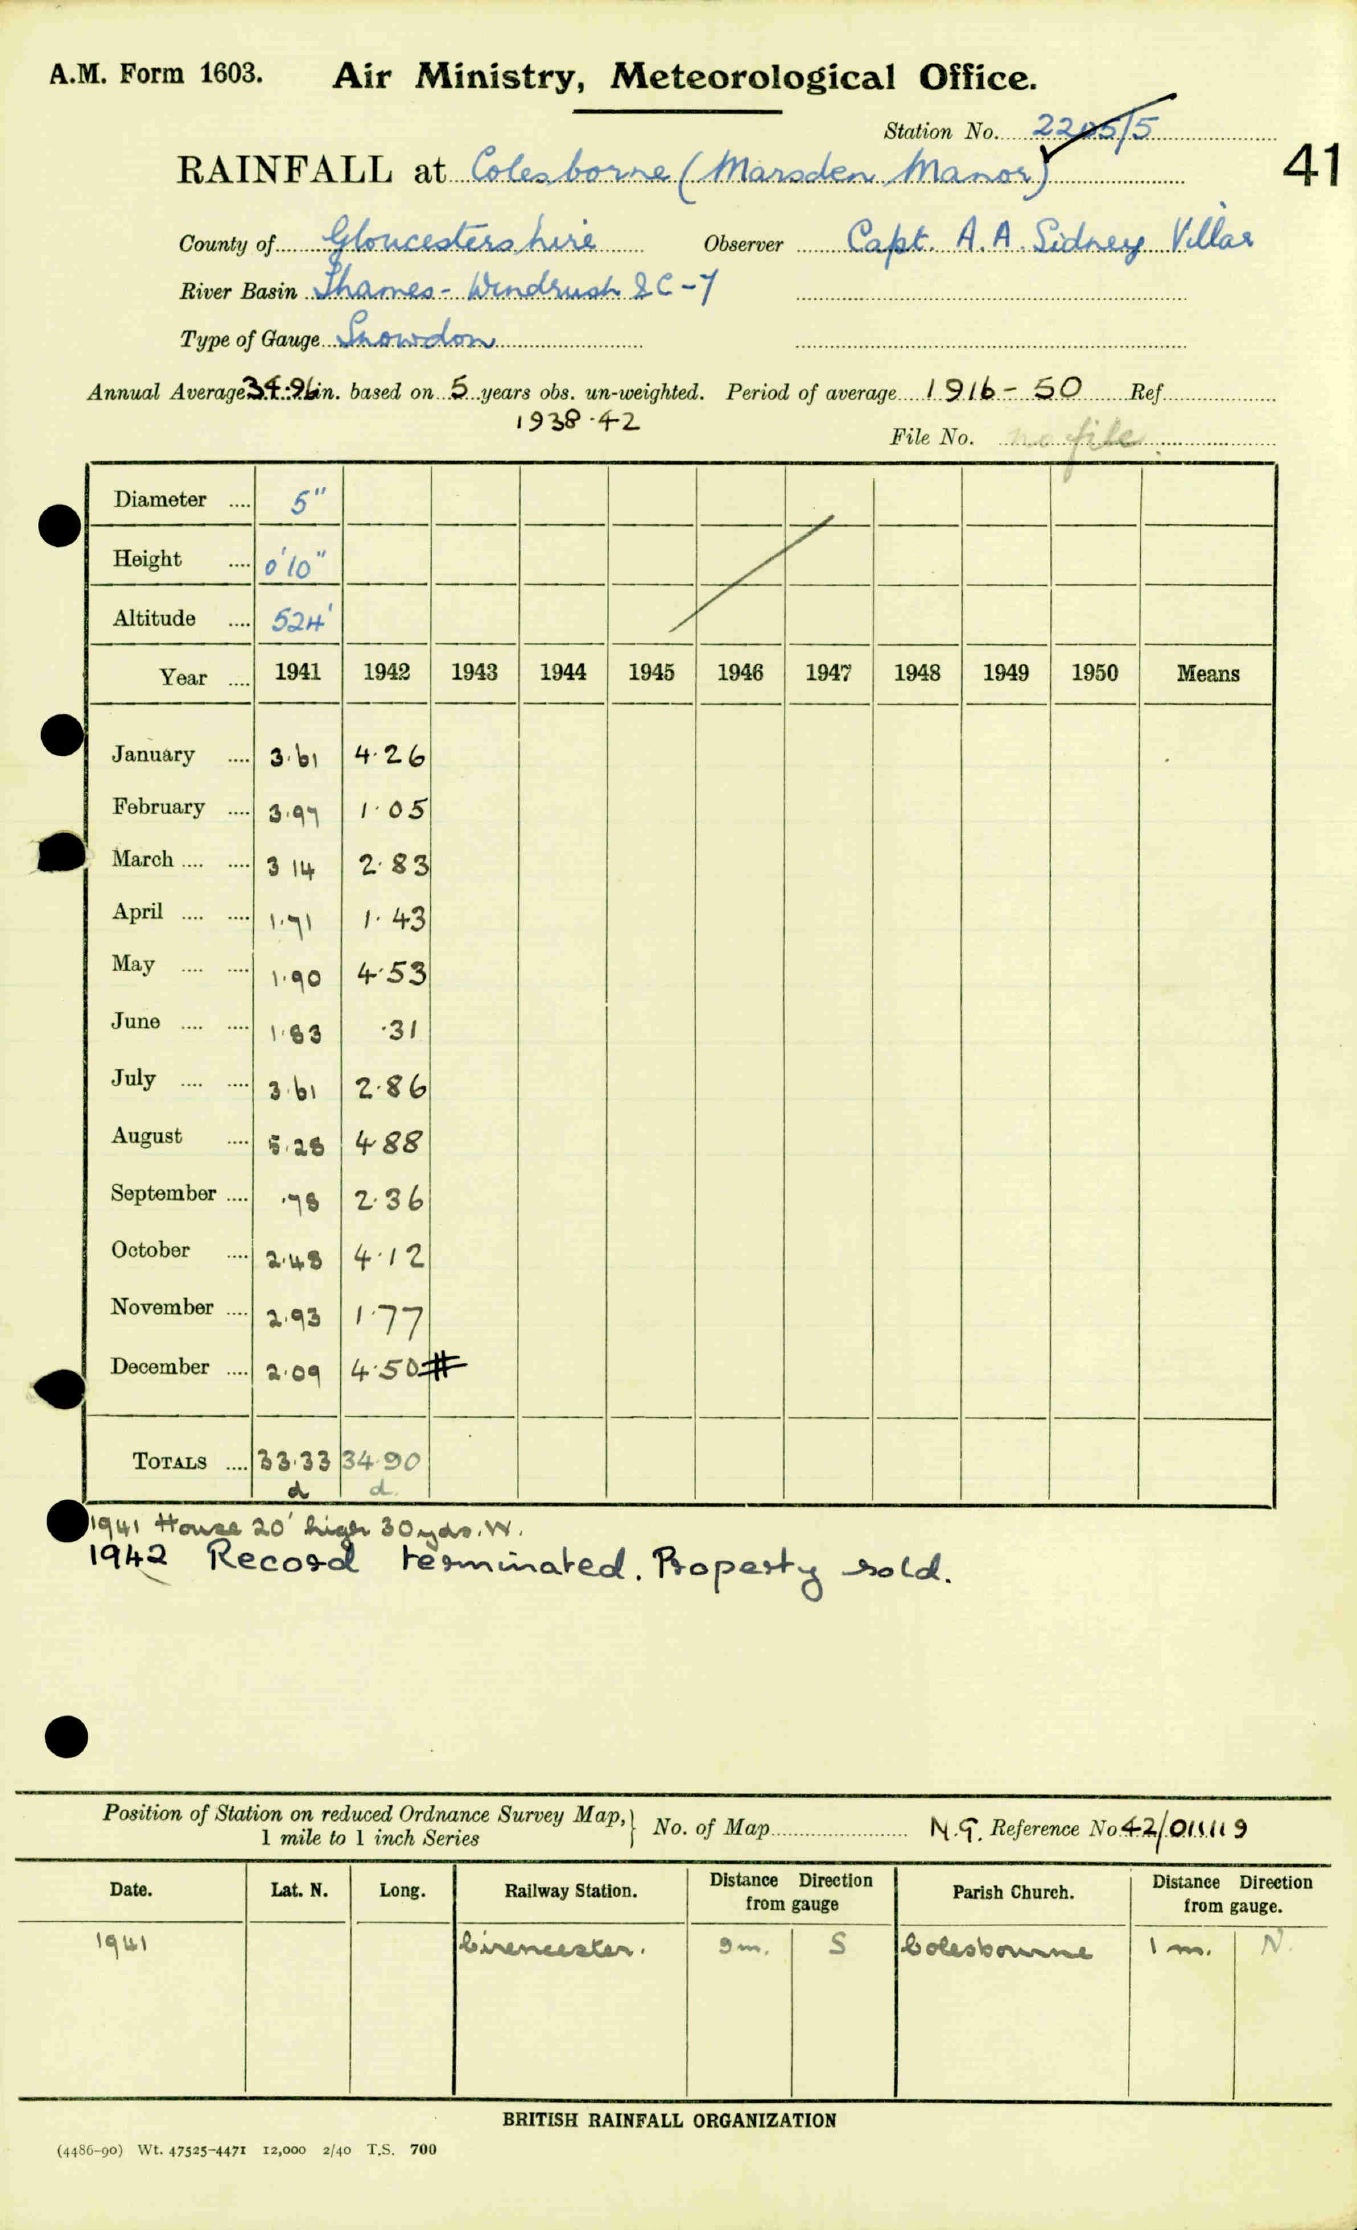 A.M. Form 1603. Air Ministry, Meteorological Office.
Station No. 2205/5
41
RAINFALL at Colesborne (Marsden Manor)
County of Gloucestershire Observer Capt. A. A. Sidney Villar
River Basin Thames - Windrush &C - 7
Type of Gauge Snowdon
Annual Average 34.96 in. based on 5 years obs. un-weighted. Period of average 1916 - 50 Ref.
1938-42
File No. no file.
Diameter .... 5"
Height .... 0'10"
Altitude .... 524'
Year .... 1941 1942 1943 1944 1945 1946 1947 1948 1949 1950 Means
January .... 3.61 4.26
February .... 3.97 1.05
March .... .... 3 14 2.83
April .... .... 1.71 1.43
May .... .... 1.90 4.53
June .... .... 1.83 .31
July .... .... 3.61 2.86
August .... 5.28 4.88
September .... .78 2.36
October .... 2.48 4.12
November .... 2.93 1.77
December .... 2.09 4.50 #
TOTALS .... 33.33 34.90
d d.
1941 House 20' high 30 yds. W.
1942 Record terminated. Property sold.
Position of Station on reduced Ordnance Survey Map, 1 mile to 1 inch Series } No. of Map N.G. Reference No 42/011119
Date. Lat. N. Long. Railway Station. Distance Direction from gauge Parish Church. Distance Direction from gauge.
1941 Cirencester. 9 m. S Colesbourne 1 m. N.
BRITISH RAINFALL ORGANIZATION
(4486-90) Wt. 47525-4471 12,000 2/40 T.S. 700